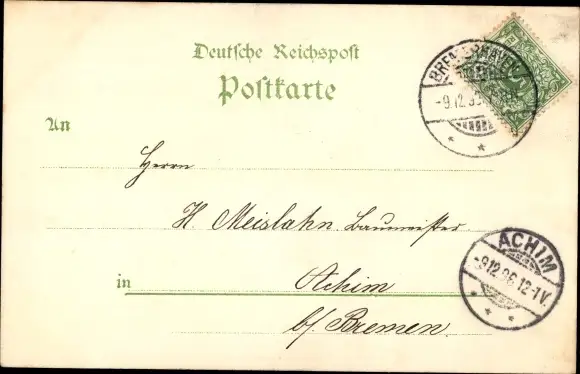 Deutsche Reichspost
Postkarte
An
Herrn
H. Meislahn Baumeister
in Achim
b/. Bremen.
BREMERHAVEN
-9.12.
ACHIM
-9.12.96.12-1V.